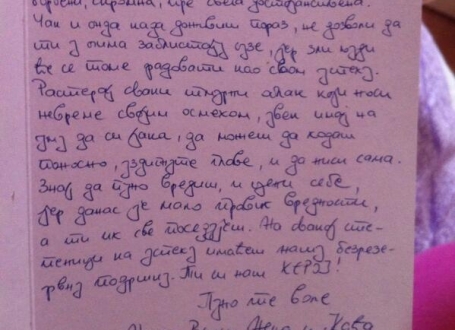 скромна, пре свега достојанствена.
Чак и онда када доживиш пораз, не дозволи да
ти у очима заблистају сузе, јер зли људи
ће се томе радовати као свом успеху.
Растерај сваки тмурни облак који носи
невреме својим осмехом, увек имај на
уму да си јака, да можеш да ходаш
поносно, уздигнуте главе, и да ниси сама.
Знај да пуно вредиш, и цени себе,
јер данас је мало правих вредности,
а ти их све поседујеш. На свакој сте-
пеници ка успеху имаћеш нашу безрезе-
рвну подршку. Ти си наш ХЕРОЈ!
Пуно те воле